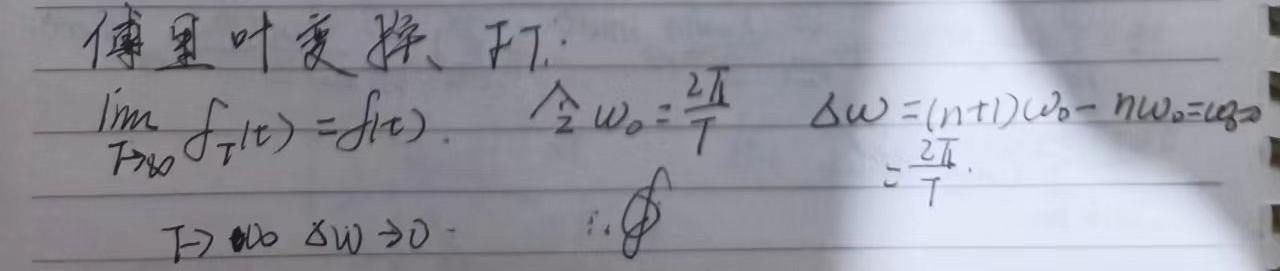 傅里叶变换 FT:
lim T→∞ f_T(t) = f(t). 令 ω₀ = 2π/T Δω = (n+1)ω₀ - nω₀ = ω₀
= 2π/T.
T→∞ Δω→0 ∴